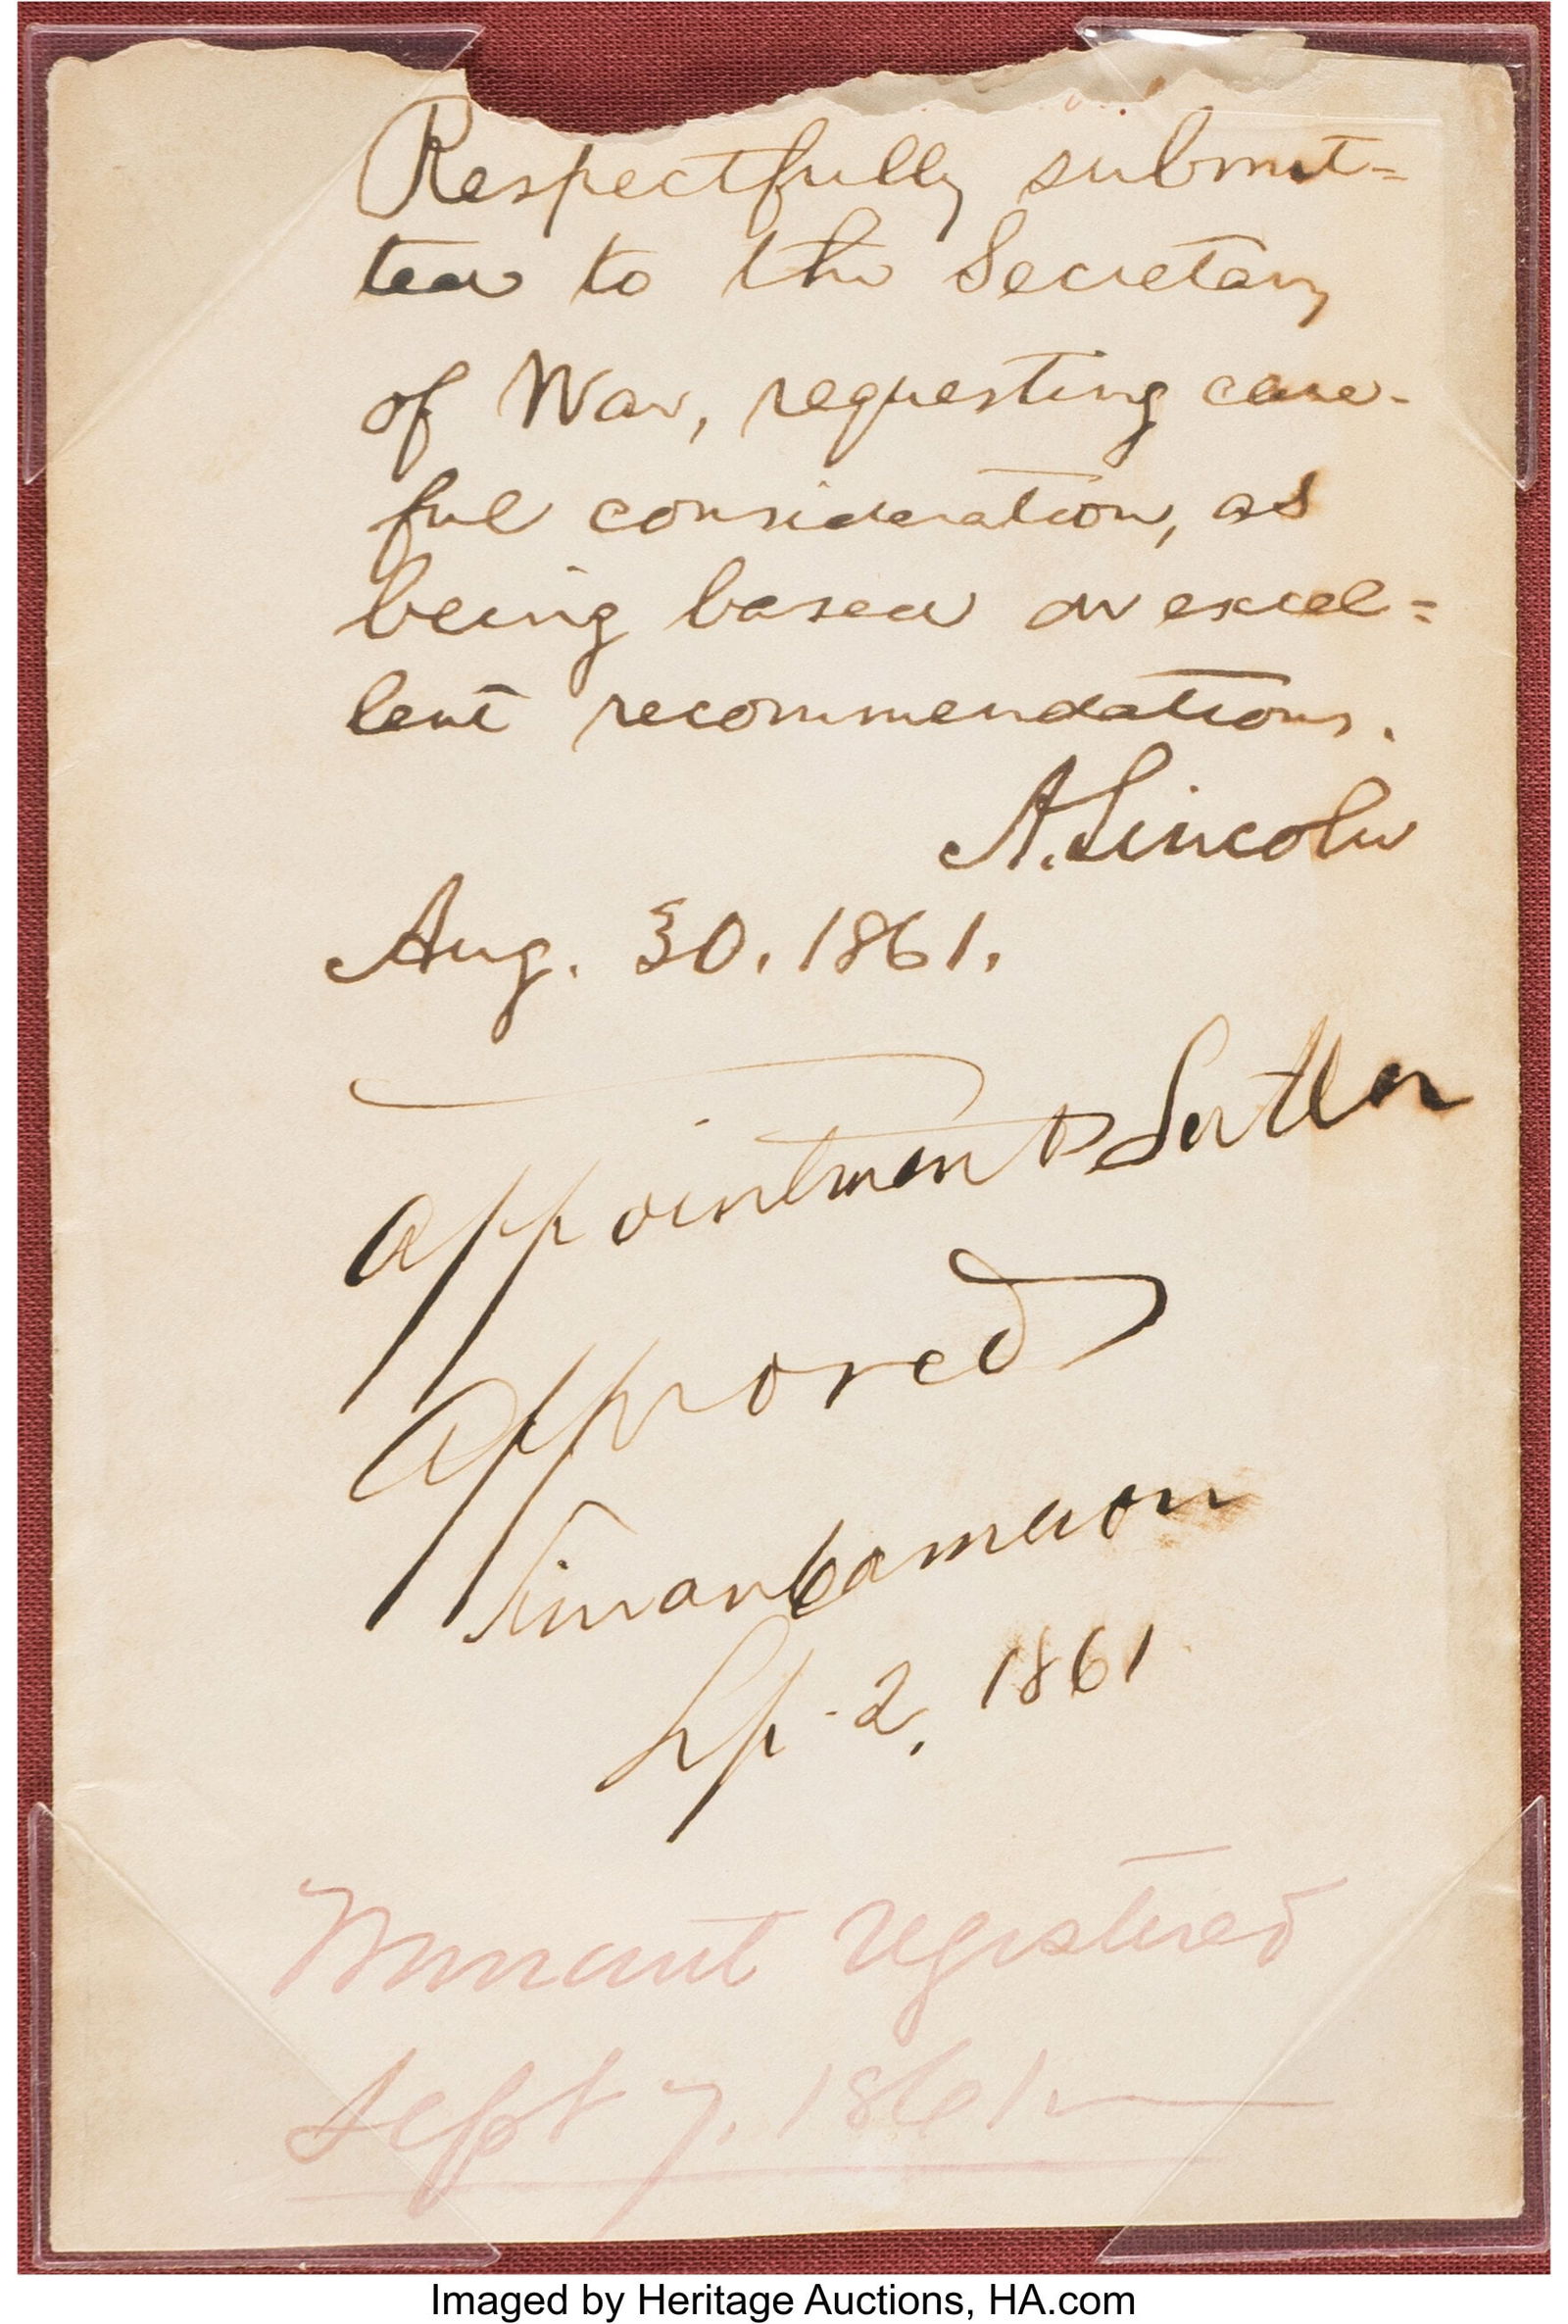 Respectfully submit=
ted to the Secretary
of War, requesting care-
ful consideration, as
being based on excel=
lent recommendations.
A. Lincoln
Aug. 30. 1861.
Appointment Sutler
Approved
Simon Cameron
Sep. 2, 1861
Warrant registered
Sept 7, 1861
Imaged by Heritage Auctions, HA.com